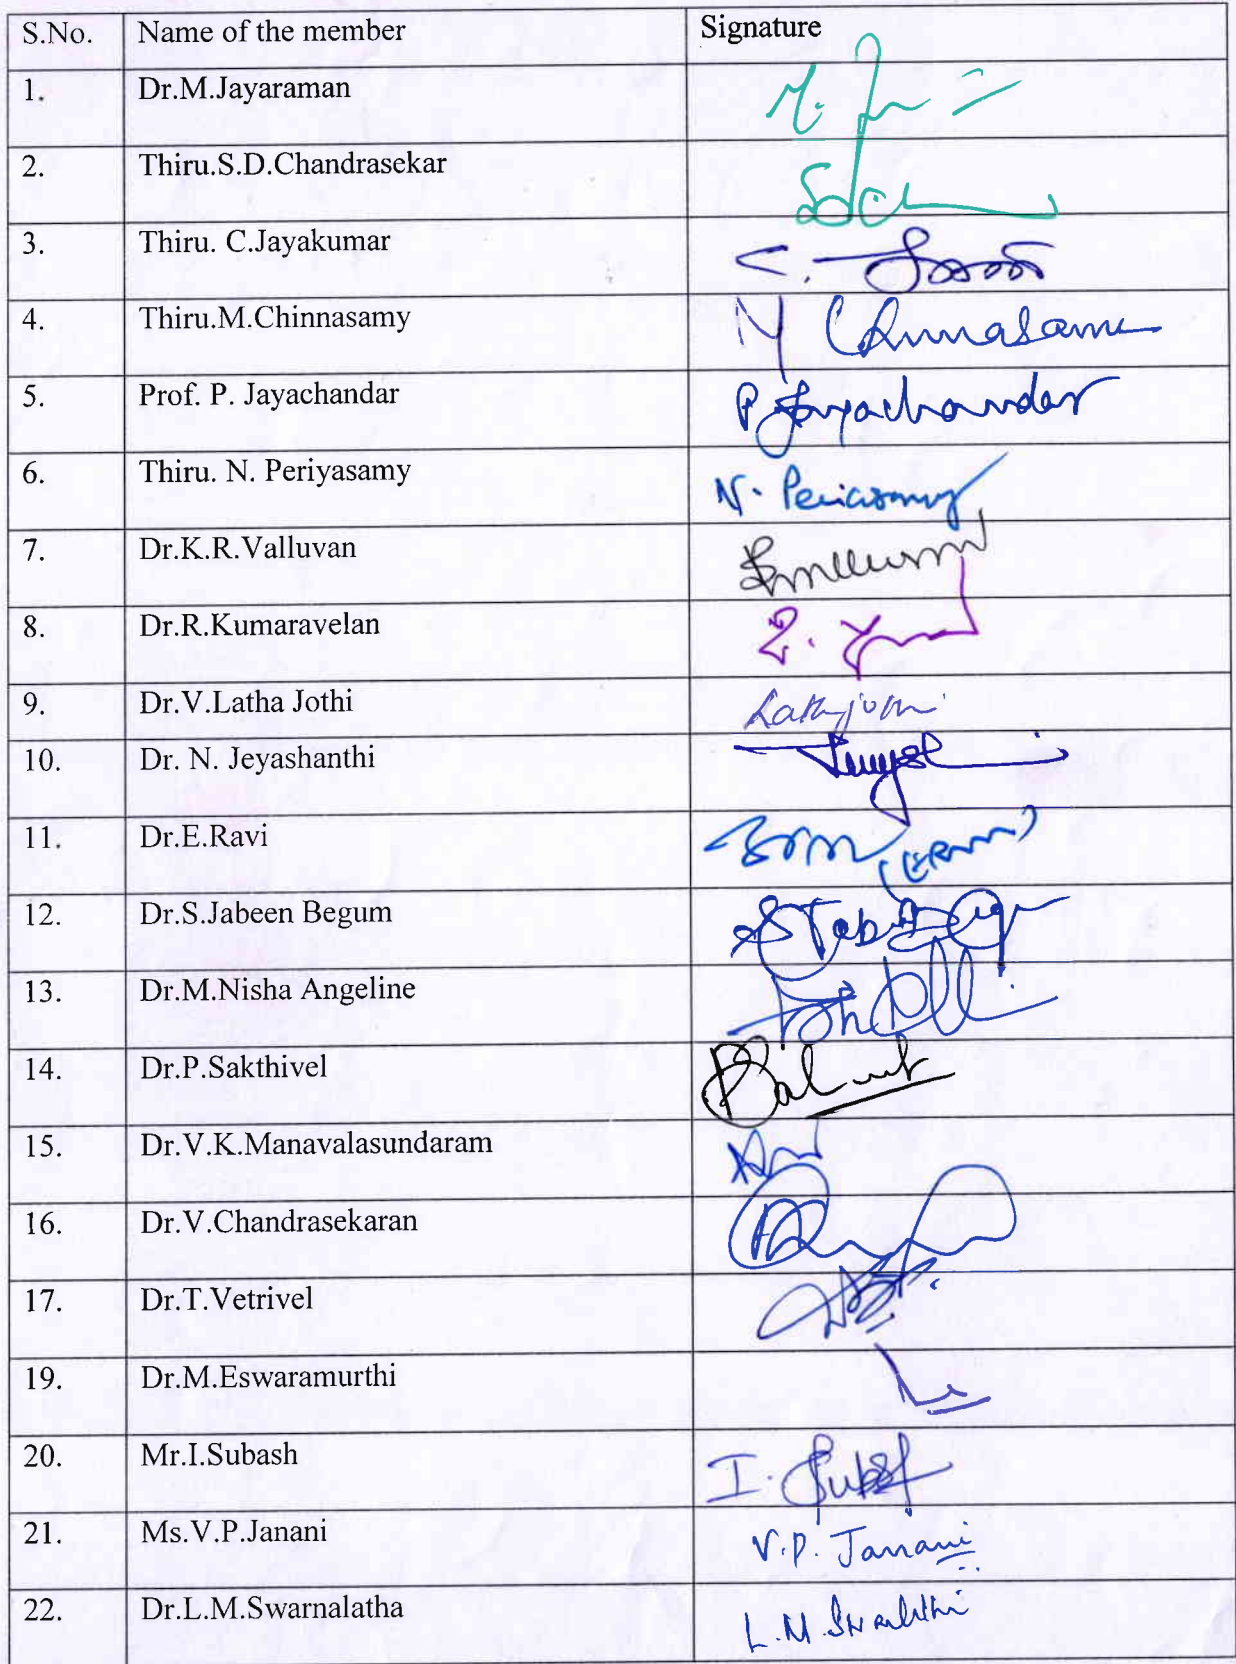 S.No. Name of the member Signature
1. Dr.M.Jayaraman
2. Thiru.S.D.Chandrasekar
3. Thiru. C.Jayakumar
4. Thiru.M.Chinnasamy M Chinnasamy
5. Prof. P. Jayachandar P. Jayachandar
6. Thiru. N. Periyasamy N. Periasamy
7. Dr.K.R.Valluvan
8. Dr.R.Kumaravelan
9. Dr.V.Latha Jothi
10. Dr. N. Jeyashanthi
11. Dr.E.Ravi
12. Dr.S.Jabeen Begum
13. Dr.M.Nisha Angeline
14. Dr.P.Sakthivel
15. Dr.V.K.Manavalasundaram
16. Dr.V.Chandrasekaran
17. Dr.T.Vetrivel
19. Dr.M.Eswaramurthi
20. Mr.I.Subash I. Subash
21. Ms.V.P.Janani V.P. Janani
22. Dr.L.M.Swarnalatha L.M.